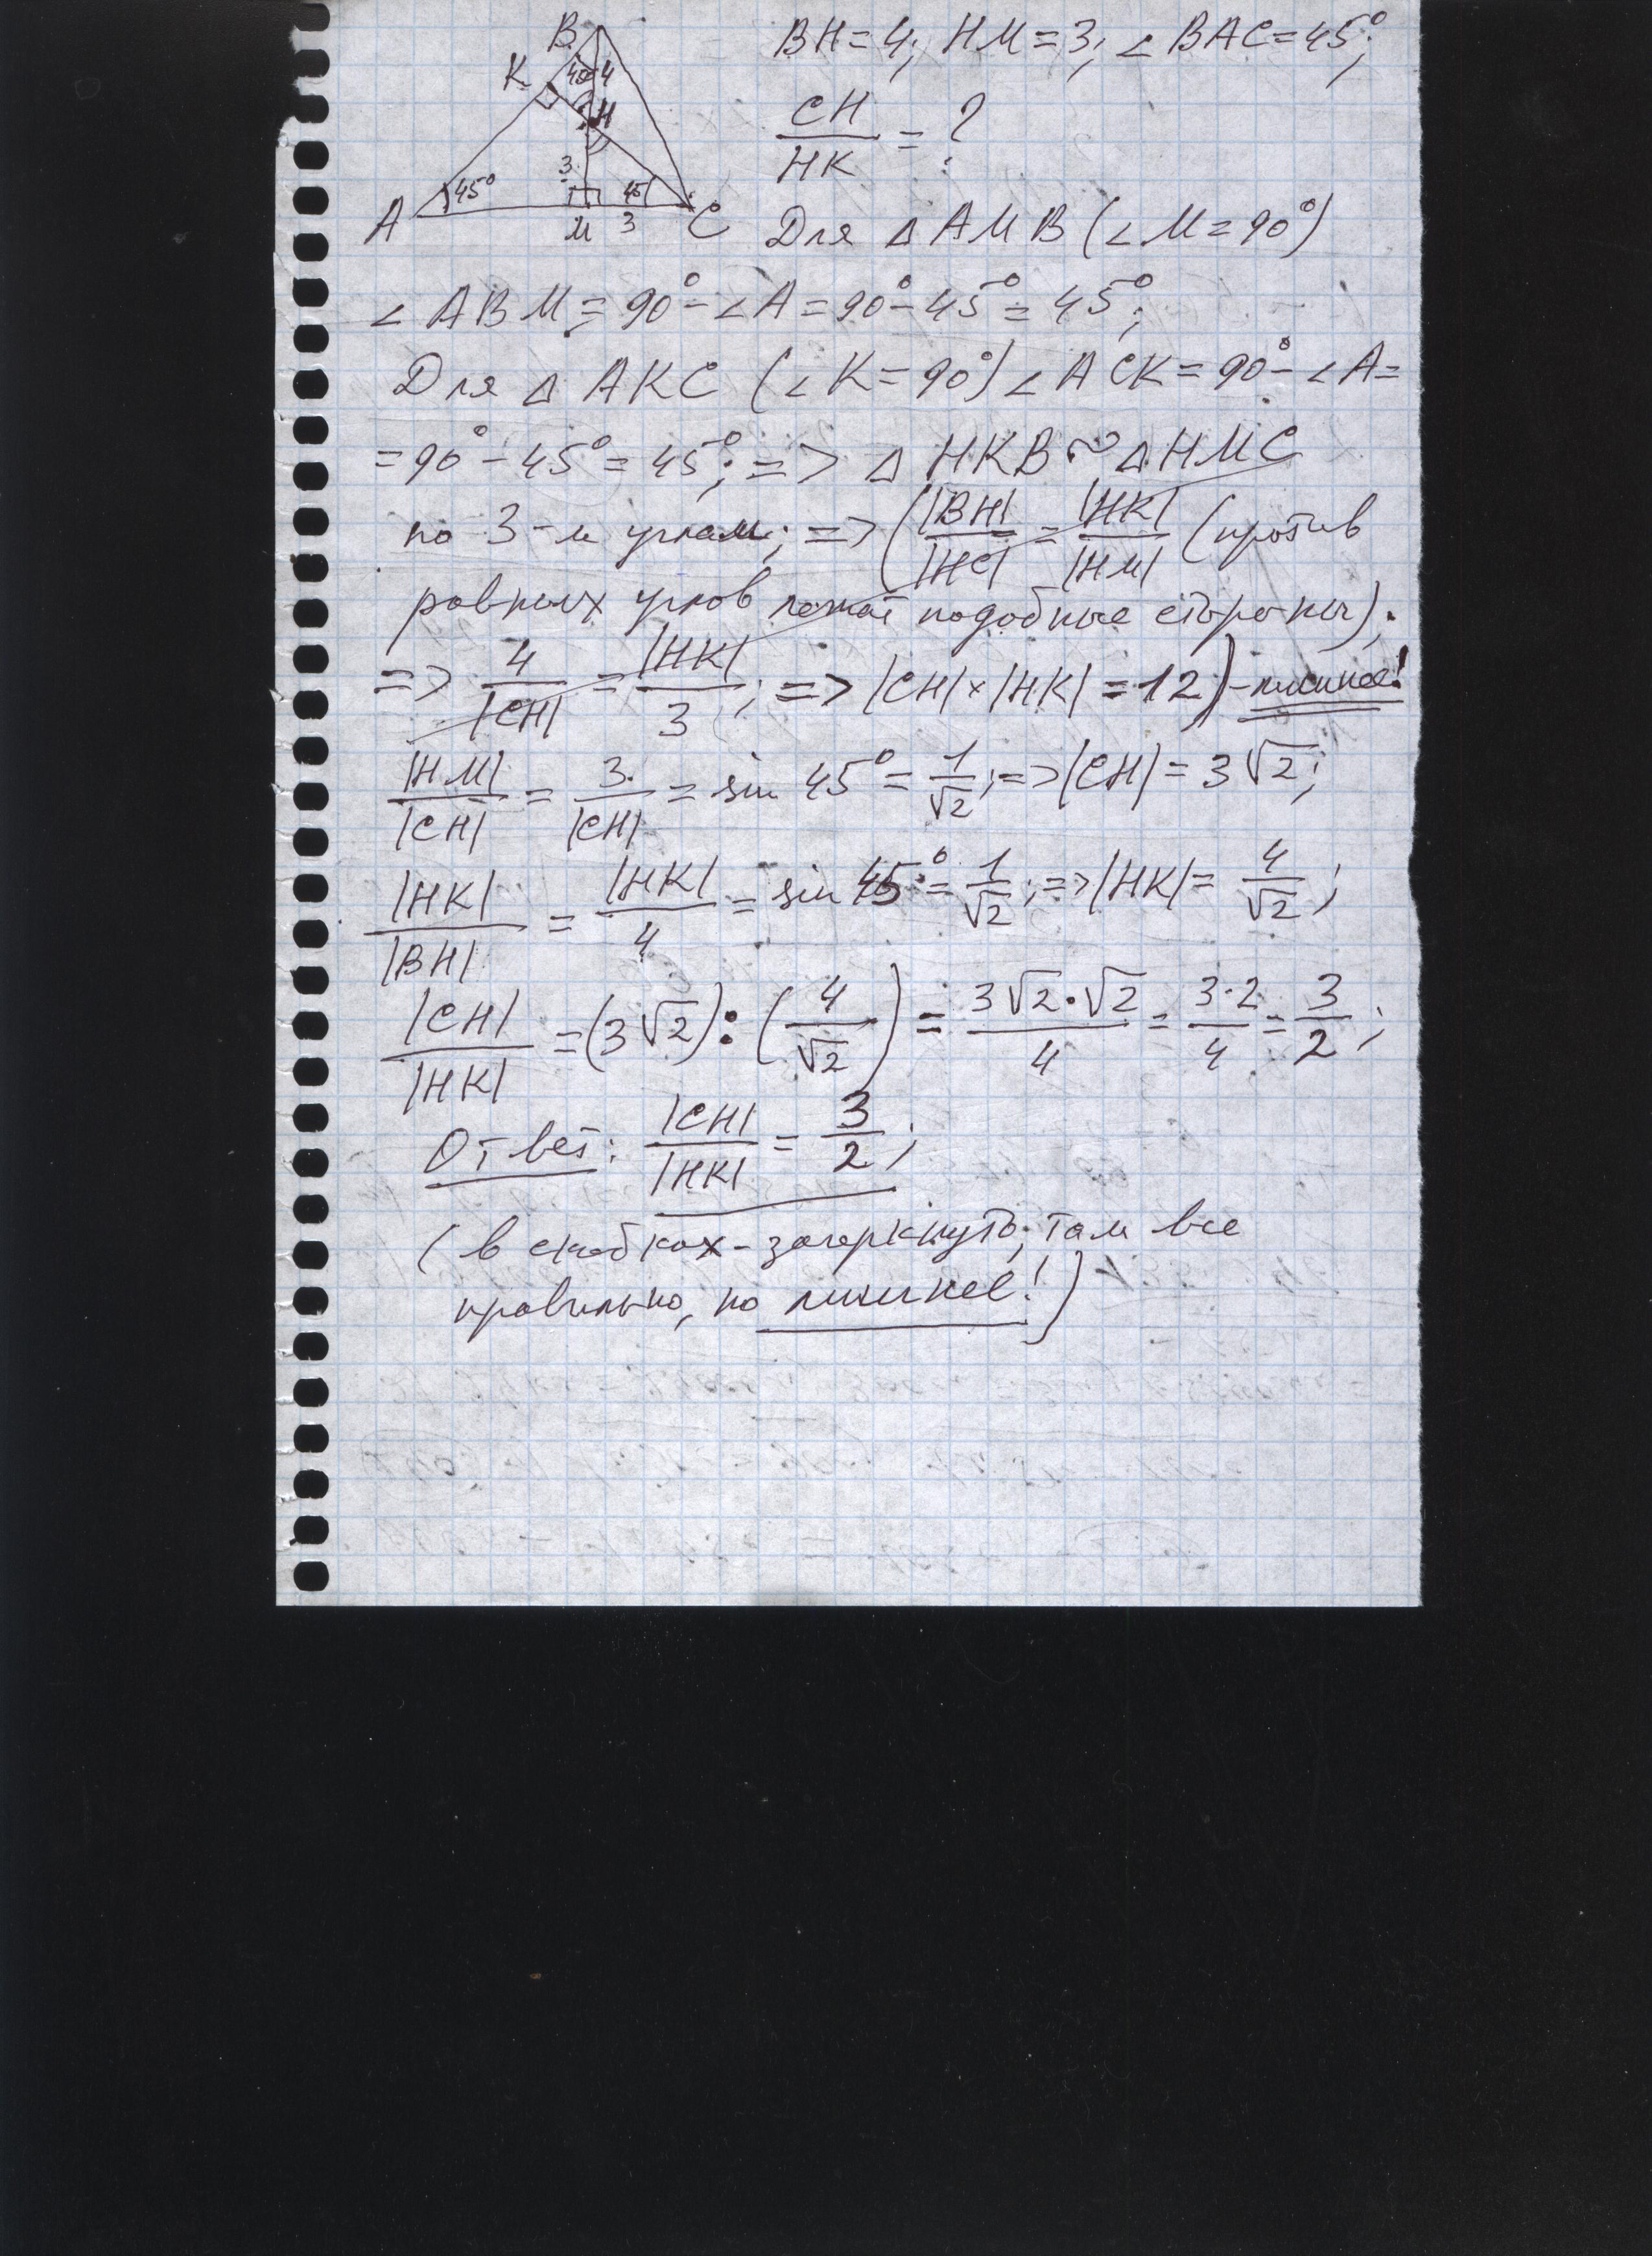 B
K
45° 4
H
3
A 45° M 3 45 C
BH = 4; HM = 3; ∠BAC = 45°;
CH/HK = ?
Для △AMB (∠M = 90°)
∠ABM = 90° - ∠A = 90° - 45° = 45°;
Для △ AKC (∠K = 90°) ∠ACK = 90° - ∠A =
= 90° - 45° = 45°; => △ HKB ~ △HMC
по 3-м углам; => (|BH|/|HC| = |HK|/|HM| (против
равных углов лежат подобные стороны);
=> 4/|CH| = |HK|/3; => |CH| × |HK| = 12) - лишнее!
|HM|/|CH| = 3/|CH| = sin 45° = 1/√2; => |CH| = 3√2;
|HK|/|BH| = |HK|/4 = sin 45° = 1/√2; => |HK| = 4/√2;
|CH|/|HK| = (3√2) : (4/√2) = 3√2·√2/4 = 3·2/4 = 3/2;
Ответ: |CH|/|HK| = 3/2;
(в скобках - зачеркнуто; там все
правильно, но лишнее!)